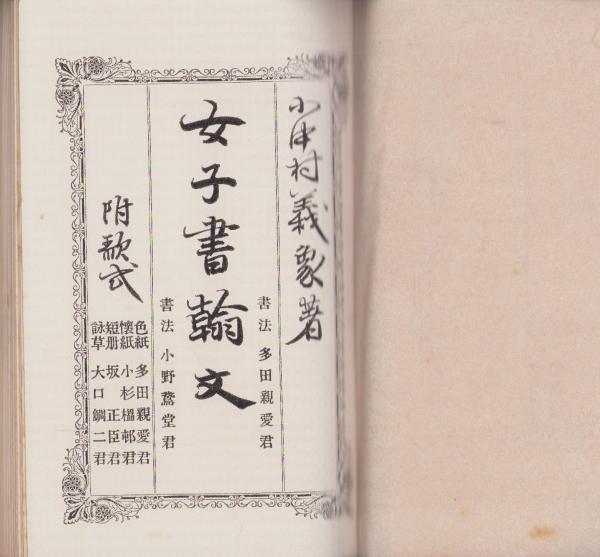 小中村義象著
書法 多田親愛君
女子書翰文
書法 小野鵞堂君
附歌式
色紙 多田親愛君
懐紙 小杉榲邨君
短册 坂正臣君
詠草 大口鯛二君